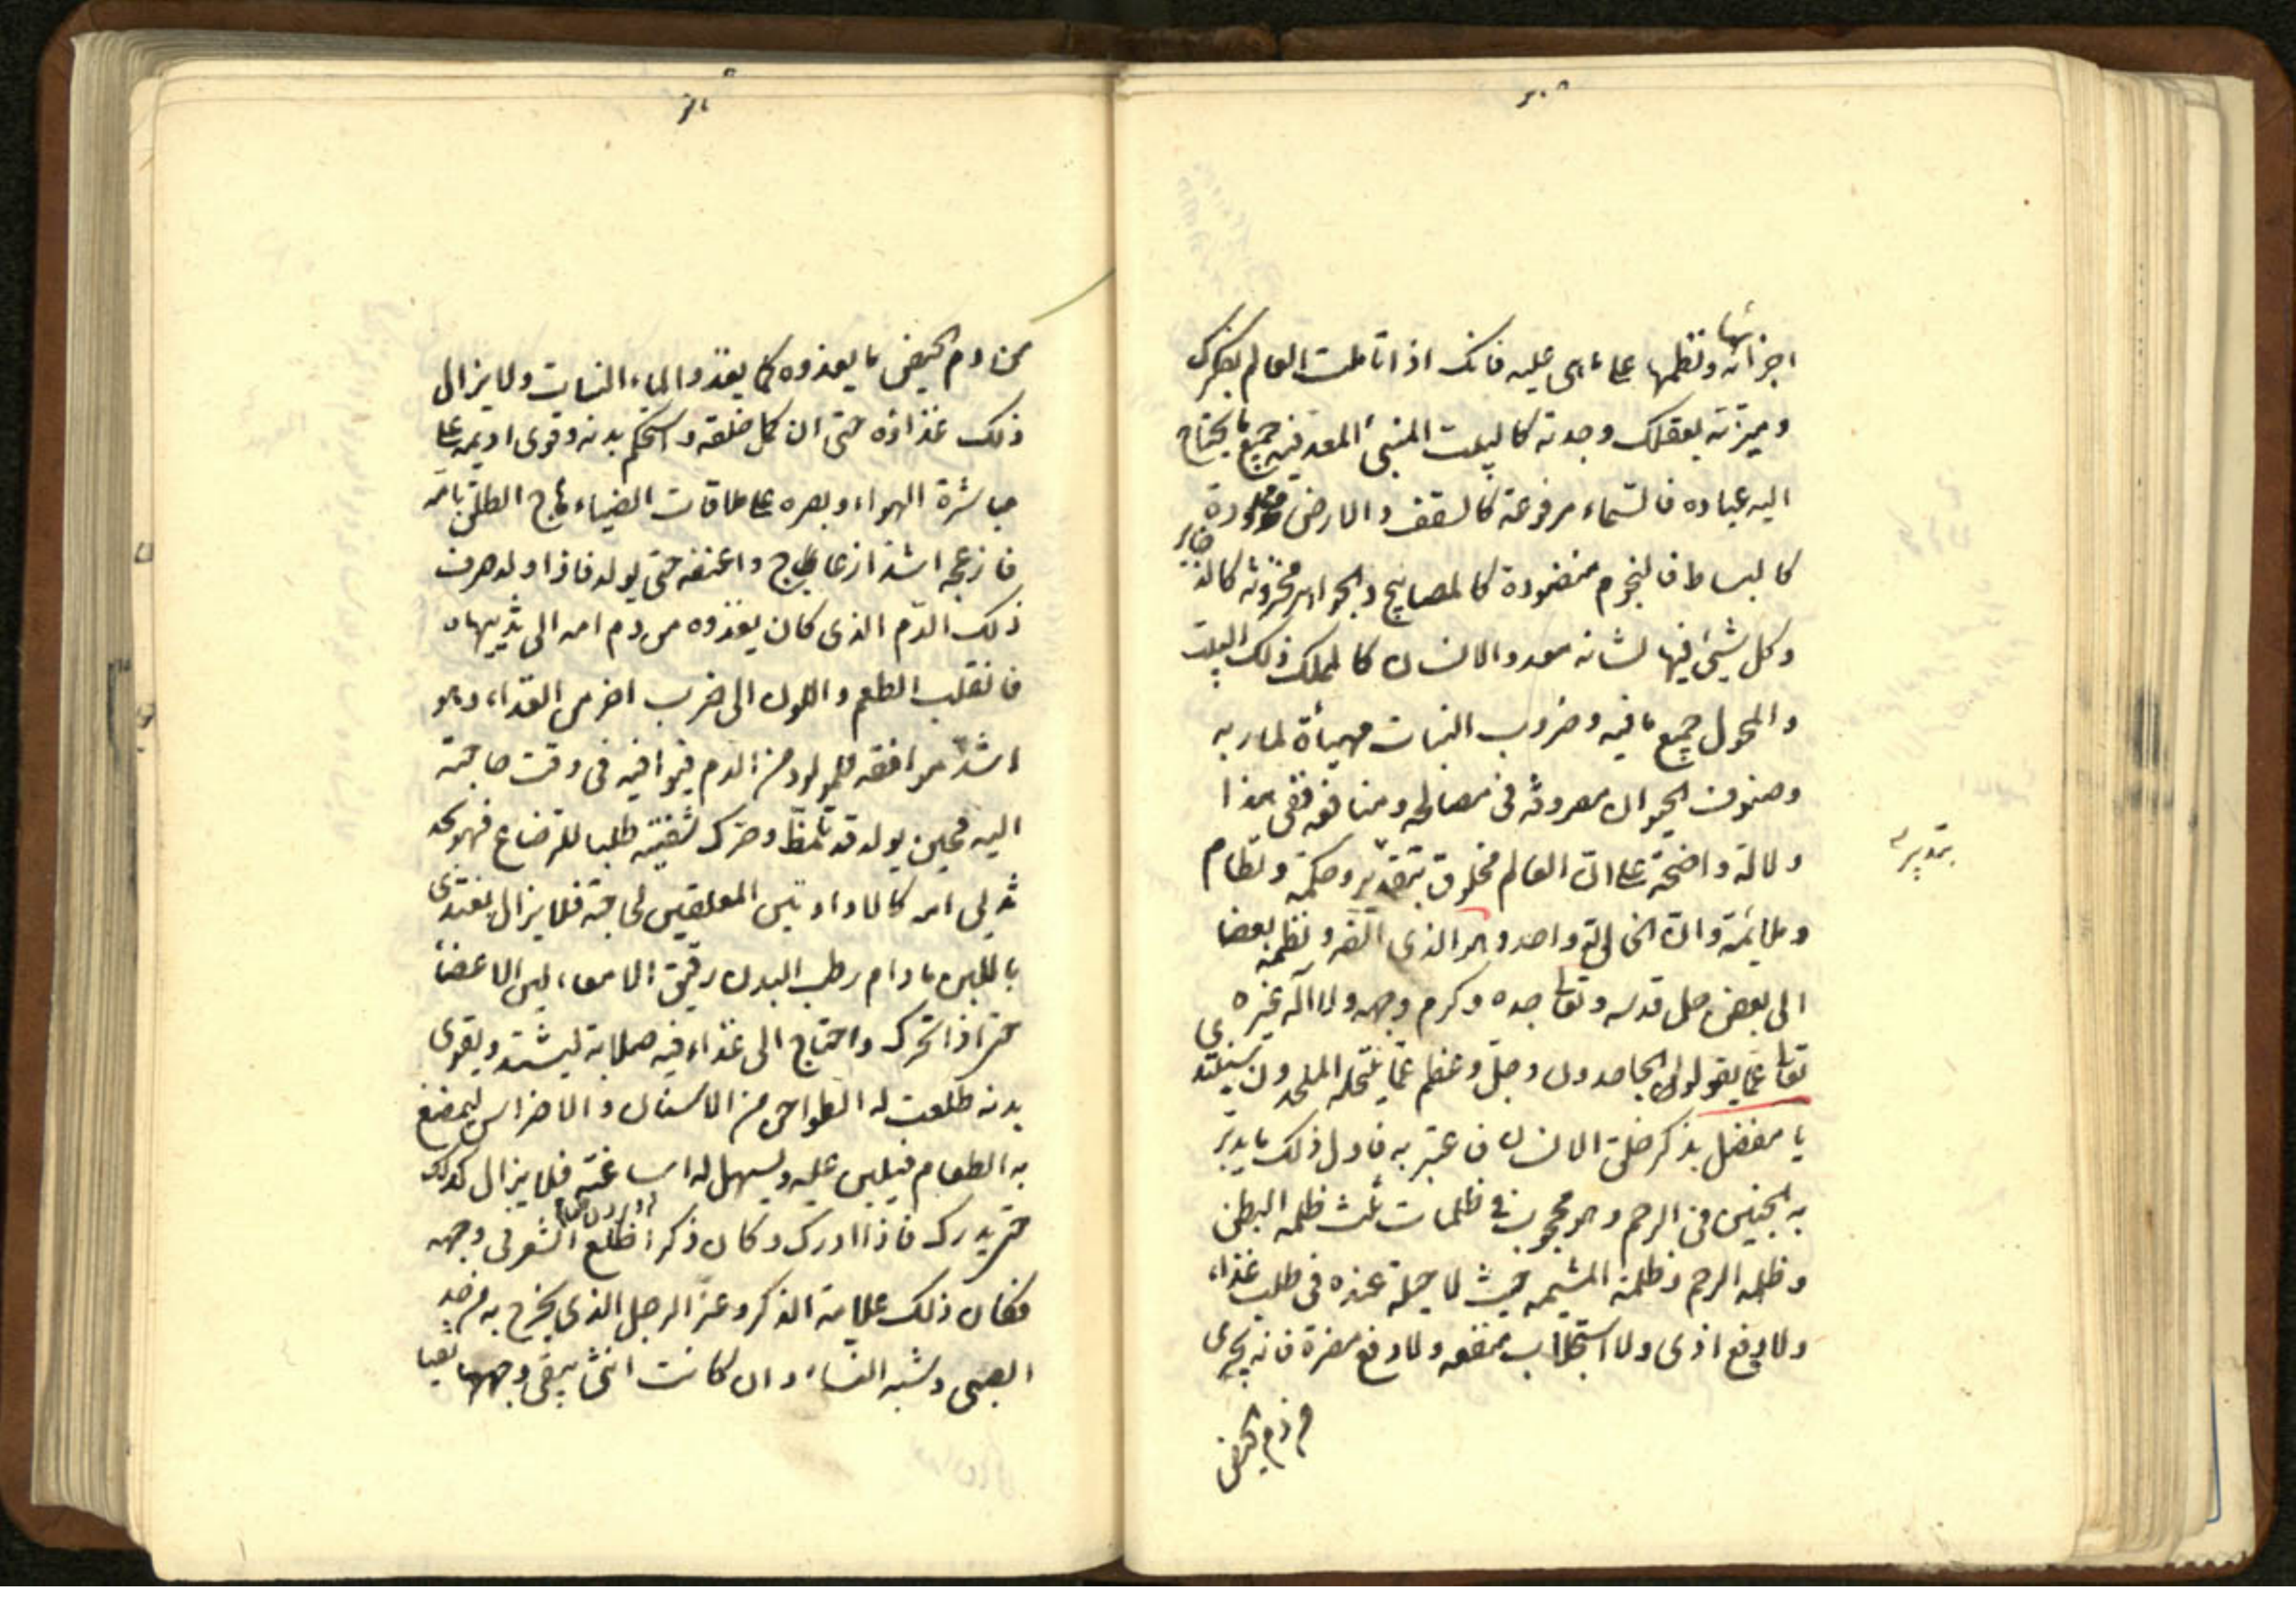 اجزائها ونظمها على ما هى عليه فانك اذا تاملت العالم بفكرك
وميزته بعقلك وجدته كالبيت المبنى المعد فيه جميع ما يحتاج
اليه عباده فالسماء مرفوعة كالسقف والارض ممدودة
كالبساط فالنجوم منضودة كالمصابيح والجواهر مخزونة كالذخاير
وكل شىء فيها لشانه معد والانسان كالملك ذلك البيت
والمخول جميع ما فيه وضروب النبات مهيأة لماربه
وصنوف الحيوان مصروفة فى مصالحه ومنافعه ففى هذا
دلالة واضحة على ان العالم مخلوق بتقدير وحكمة ونظام
بتدبير
وملائمة وان الخالق له واحد وهو الذى الفه ونظمه بعضا
الى بعض جل قدسه وتعالى جده وكرم وجهه ولا اله غيره
تعالى عما يقول الجاحدون وجل وعظم عما ينتحله الملحدون نبتدى
يا مفضل بذكر خلق الانسان فاعتبر به فاول ذلك ما يدبر
به الجنين فى الرحم وهو محجوب فى ظلمات ثلث ظلمة البطن
وظلمة الرحم وظلمة المشيمة حيث لا حيلة عنده فى طلب غذاء
ولا دفع اذى ولا استجلاب منفعة ولا دفع مضرة فانه يجرى
من دم الحيض
من دم الحيض ما يغذوه كما يغذو الماء النبات ولا يزال
ذلك غذاؤه حتى ان كمل خلقه واستحكم بدنه وقوى اديمه على
مباشرة الهواء وبصره على ملاقات الضياء هاج الطلق بامه
فازعجه اشد ازعاج واعنفه حتى يولد فاذا ولد صرف
ذلك الدم الذى كان يغذوه من دم امه الى ثدييها
فانقلب الطعم واللون الى ضرب اخر من الغذاء وهو
اشد موافقة للمولود من الدم فيوافيه فى وقت حاجته
اليه فحين يولد قد تلمظ وحرك شفتيه طلبا للرضاع فهو يجد
ثديى امه كالاداوتين المعلقتين لحاجته فلا يزال يغتذى
باللبن ما دام رطب البدن رقيق الامعاء لين الاعضاء
حتى اذا تحرك واحتاج الى غذاء فيه صلابة ليشتد ويقوى
بدنه طلعت له الطواحن من الاسنان والاضراس ليمضغ
به الطعام فيلين عليه ويسهل له اساغته فلا يزال كذلك
حتى يدرك فاذا ادرك وكان ذكرا طلع الشعر فى وجهه
فكان ذلك علامة الذكر وعز الرجل الذى يخرج به من حد
الصبى وشبه النساء وان كانت انثى يبقى وجهها نقيا